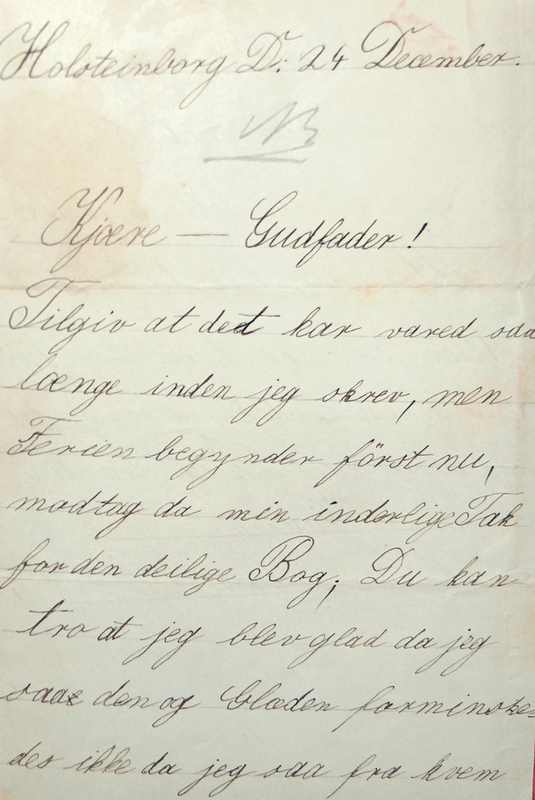 Holsteinborg D: 24 December.
NB
Kjære — Gudfader!
Tilgiv at det har vared saa
længe inden jeg skrev, men
Ferien begynder först nu,
modtag da min inderlige Tak
for den deilige Bog; Du kan
tro at jeg blev glad da jeg
saae den og Glæden forminske=
des ikke da jeg saa fra hvem